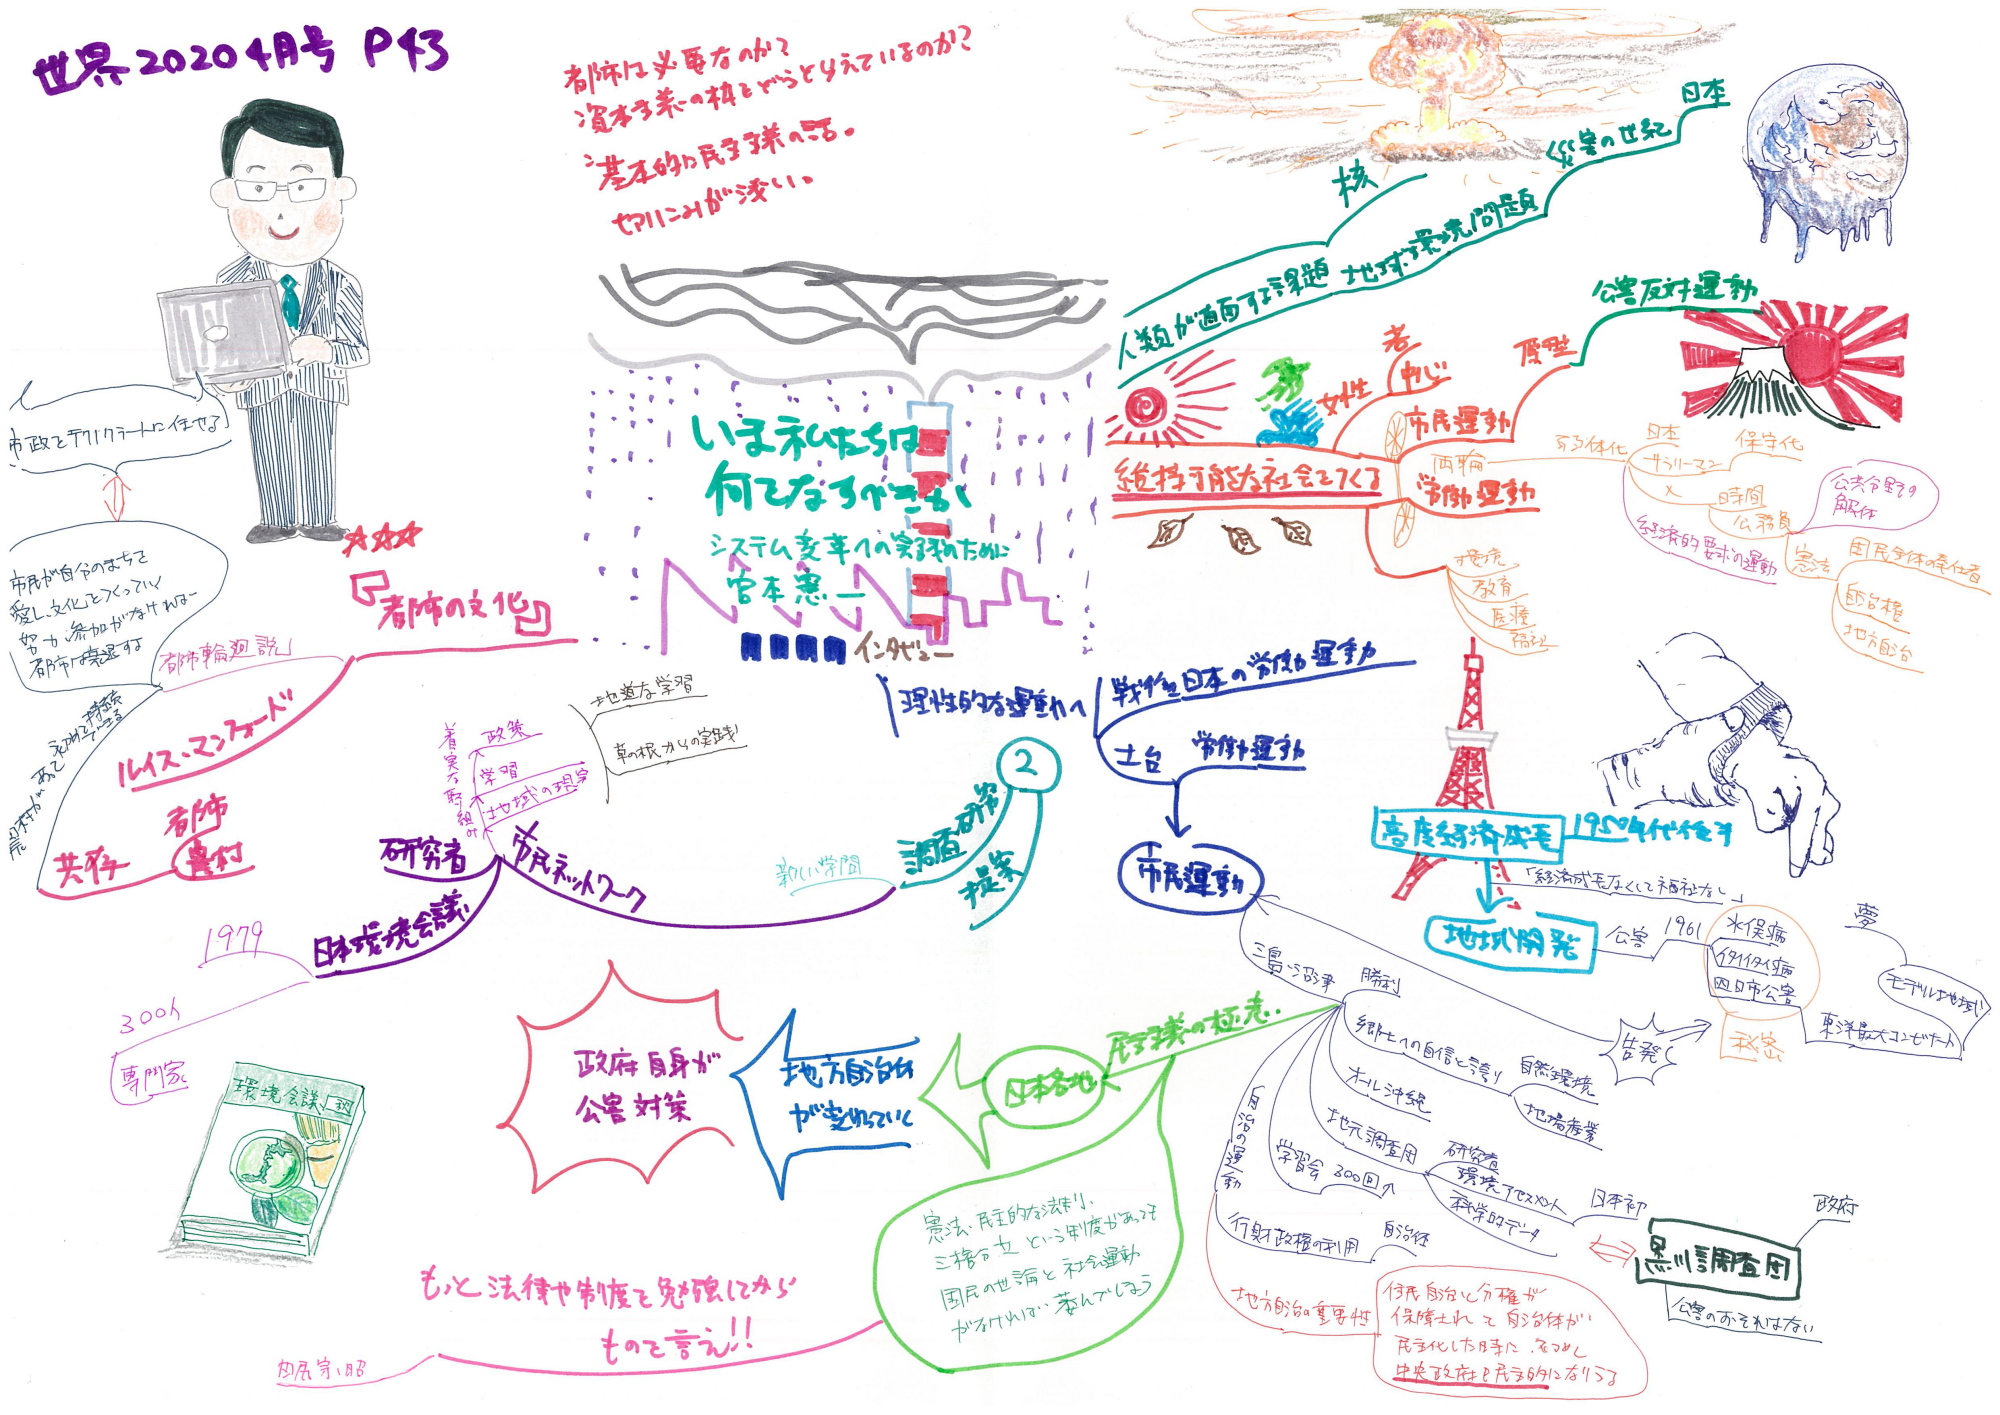 世界2020 4月号 P43
都市は必要なのか?
資本主義の枠をどうとらえているのか?
基本的に民主主義の話。
切りこみが浅い。
日本
災害の世紀
核
地球環境問題
人類が直面する課題
公害反対運動
原型
若
中心
女性
市民運動
両輪
労働運動
維持可能な社会をつくる
弱体化
日本
サラリーマン
保守化
×
時間
公務員
公共分野の
解体
経済的要求の運動
憲法
国民主体の奉仕者
自治権
地方自治
環境
教育
医療
福祉
いま私たちは
何をなすべきか
システム変革への実践のために
宮本憲一
インタビュー
市政をテクノクラートに任せる
市民が自分のまちを
愛し、文化をつくっていく
努力、参加がなければ
都市は衰退する
「都市輪廻説」
『都市の文化』
ルイス・マンフォード
都市
農村
共存
農村があって
持続
理性的な運動へ
戦後日本の労働運動
土台
労働運動
市民運動
②
調査研究
提案
新しい学問
市民ネットワーク
研究者
着実な取り組み
政策
学習
地域の現実
地道な学習
草の根からの実践
日本環境会議
1979
300人
専門家
環境会議
高度経済成長
1950年代後半
「経済成長なくして福祉なし」
地域開発
公害
1961
水俣病
イタイイタイ病
四日市公害
秘密
夢
モデル地域
東洋最大コンビナート
告発
三島・沼津
勝利
郷土への自信と誇り
自然環境
地場産業
オール沖縄
地元調査団
研究者
環境アセスメント
科学的データ
日本初
学習会 300回
自治の運動
行財政権の利用
自治体
政府
黒川調査団
公害のおそれはない
地方自治の重要性
住民自治と分権が
保障されて自治体が
民主化した時に、はじめて
中央政府も民主的になりうる
民主主義の極意
日本各地
地方自治体
が変わっていく
政府自身が
公害対策
憲法、民主的な法制、
三権分立という制度があっても
国民の世論と社会運動
がなければ萎んでしまう
もっと法律や制度を勉強してから
ものを言え!!